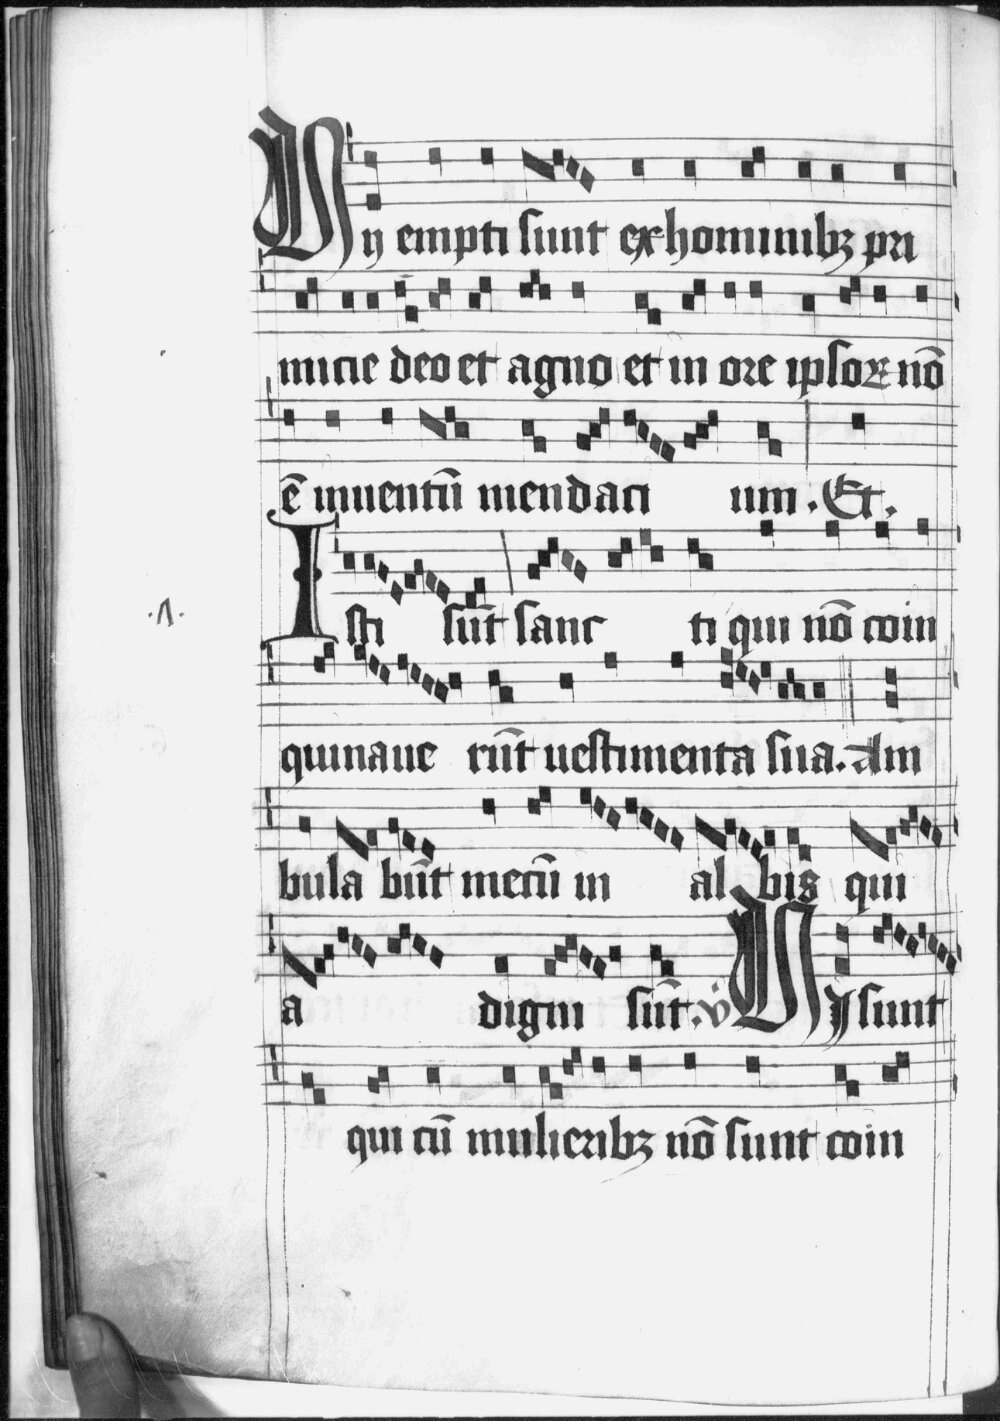 Hij empti sunt ex hominibꝫ pri
micie deo et agno et in ore ipsoꝝ nō
ē inuentū mendaci um . Et .
Isti sūt sanc ti qui nō coin
quinaue rūt uestimenta sua . Am
bula būt mecū in al bis qui
a digni sūt . v̇ Hij sunt
qui cū mulieribꝫ nō sunt coin